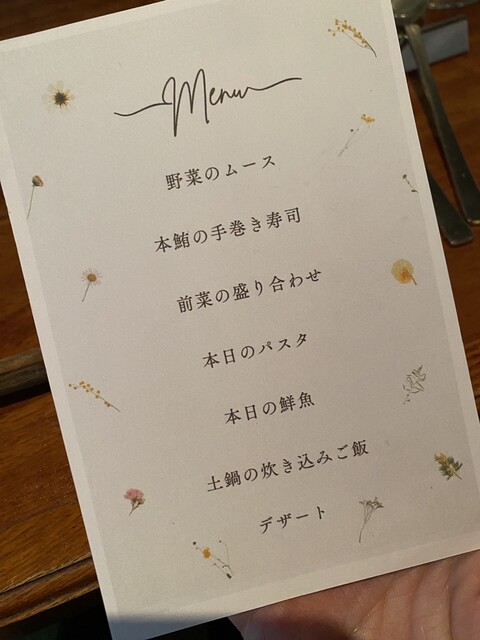 Menu
野菜のムース
本鮪の手巻き寿司
前菜の盛り合わせ
本日のパスタ
本日の鮮魚
土鍋の炊き込みご飯
デザート